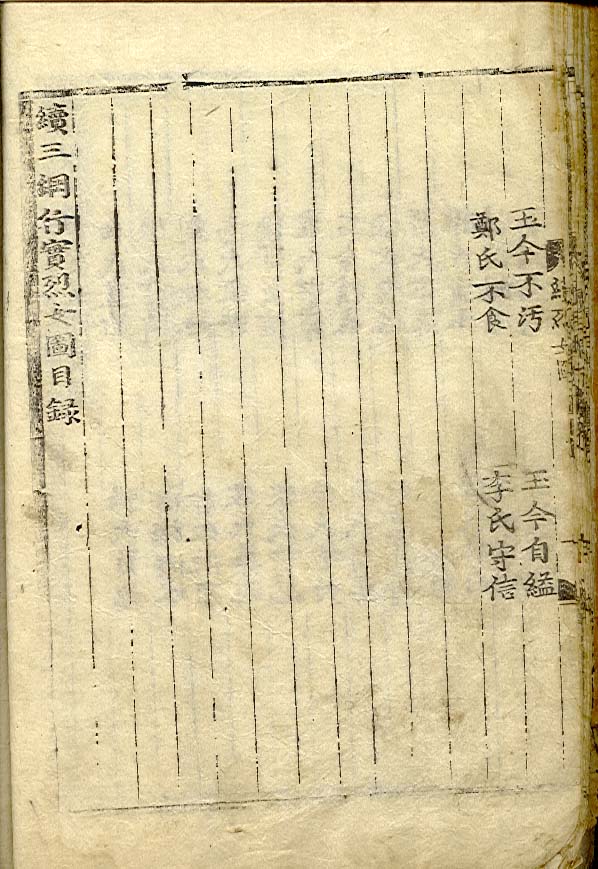 續烈女圖
玉今不汚　玉今自縊
鄭氏不食　李氏守信
續三綱行實烈女圖目録